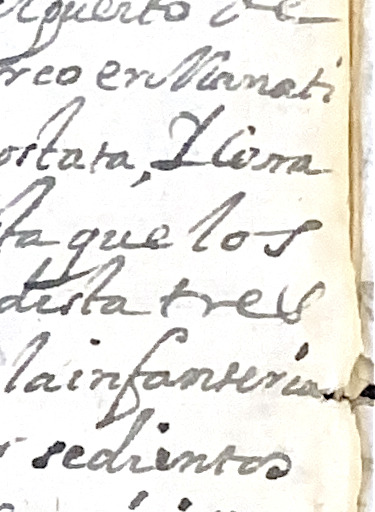 puerto de
reo en Manati
ostata, Y Corra
ta que los
dista tres
la infanteria
sedientos